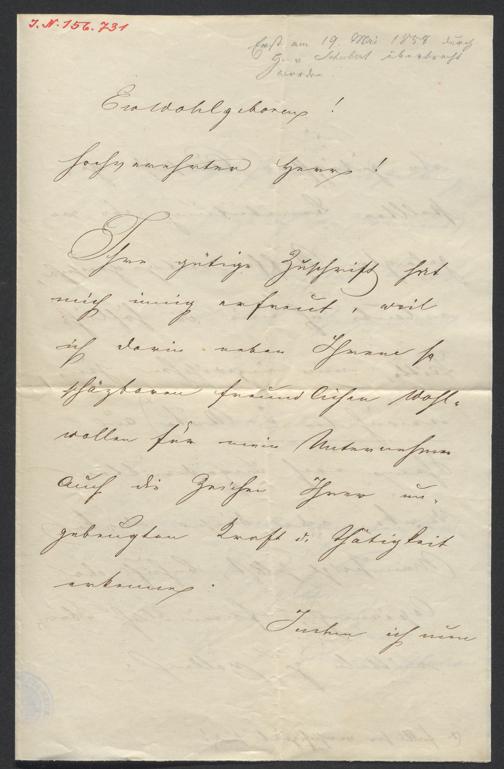 I.N. 156.731
Erst am 19. Mai 1858 durch
H. v. Schubert überbracht
worden.
Euwohlgeboren!
Hochverehrter Herr!
Ihre gütige Zuschrift hat
mich innig erfreut, weil
ich darin neben Ihrem so
schäzbaren freundlichen Wohl-
wollen für mein Unternehmen
auch die Zeichen Ihrer un-
gebeugten Kraft d. Thätigkeit
erkenne.
Indem ich nun